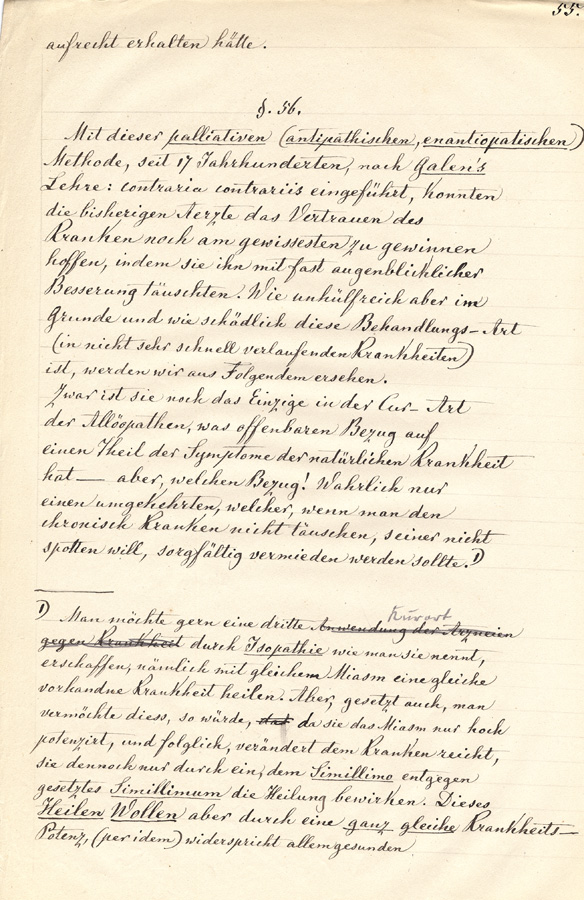 55.
aufrecht erhalten hätte.
§. 56.
Mit dieser palliativen (antipathischen, enantiopatischen)
Methode, seit 17 Jahrhunderten, nach Galen's
Lehre: contraria contrariis eingeführt, konnten
die bisherigen Aerzte das Vertrauen des
Kranken noch am gewissesten zu gewinnen
hoffen, indem sie ihn mit fast augenblicklicher
Besserung täuschten. Wie unhülfreich aber im
Grunde und wie schädlich diese Behandlungs-Art
(in nicht sehr schnell verlaufenden Krankheiten)
ist, werden wir aus Folgendem ersehen.
Zwar ist sie noch das Einzige in der Cur-Art
der Allöopathen, was offenbaren Bezug auf
einen Theil der Symptome der natürlichen Krankheit
hat — aber, welchen Bezug! Wahrlich nur
einen umgekehrten, welcher, wenn man den
chronisch Kranken nicht täuschen, seiner nicht
spotten will, sorgfältig vermieden werden sollte. 1)
Kurart
1) Man möchte gern eine dritte Anwendung der Arzneien
gegen Krankheit durch Isopathie wie man sie nennt,
erschaffen, nämlich mit gleichem Miasm eine gleiche
vorhandne Krankheit heilen. Aber, gesetzt auch, man
vermöchte diess, so würde, da sie das Miasm nur hoch
potenzirt, und folglich, verändert dem Kranken reicht,
sie dennoch nur durch ein, dem Simillimo entgegen
gesetztes Simillimum die Heilung bewirken. Dieses
Heilen Wollen aber durch eine ganz gleiche Krankheits-
Potenz, (per idem) widerspricht allem gesunden